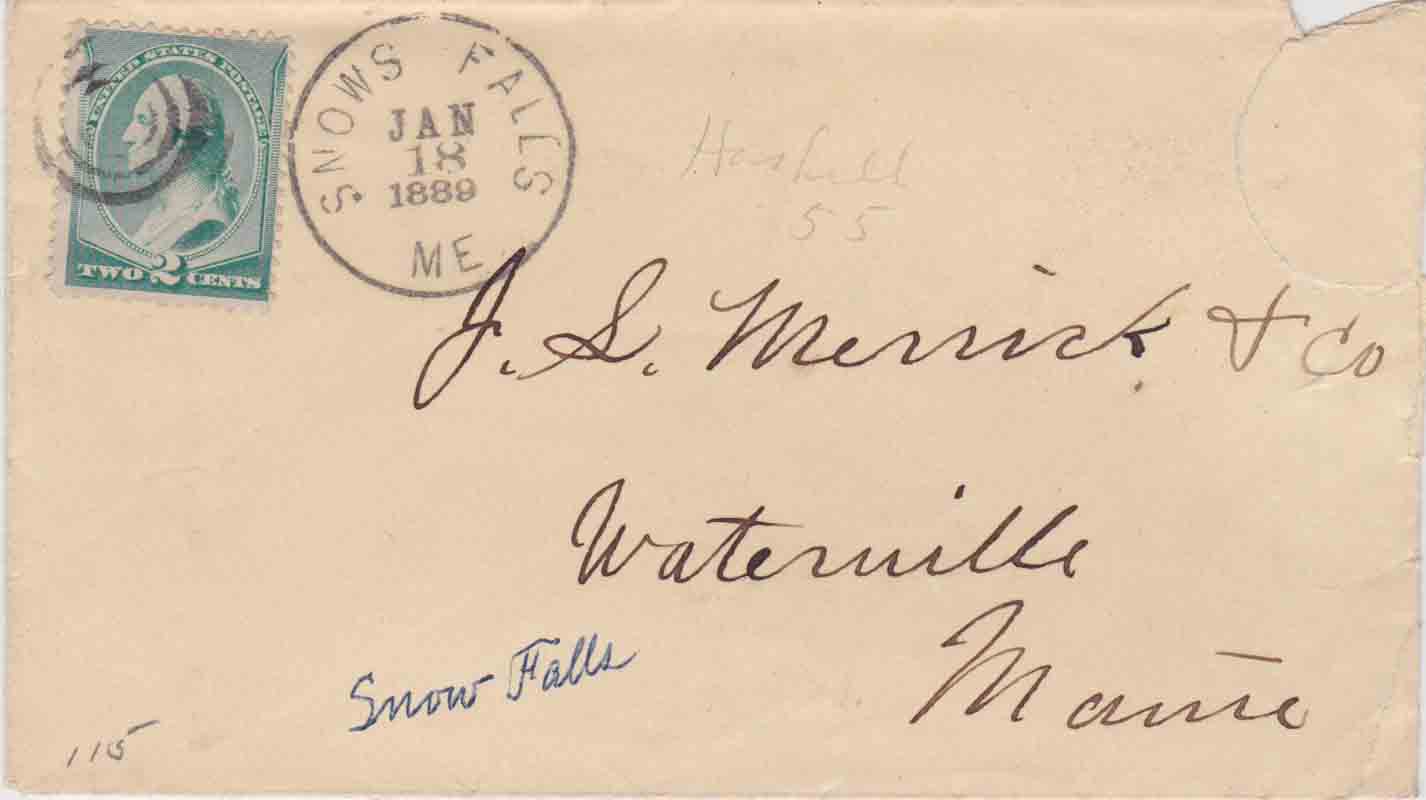 UNITED STATES POSTAGE
TWO 2 CENTS
SNOWS FALLS
JAN
18
1889
ME
Haskell
55
J. S. Merrick & Co
Waterville
Maine
Snow Falls
115